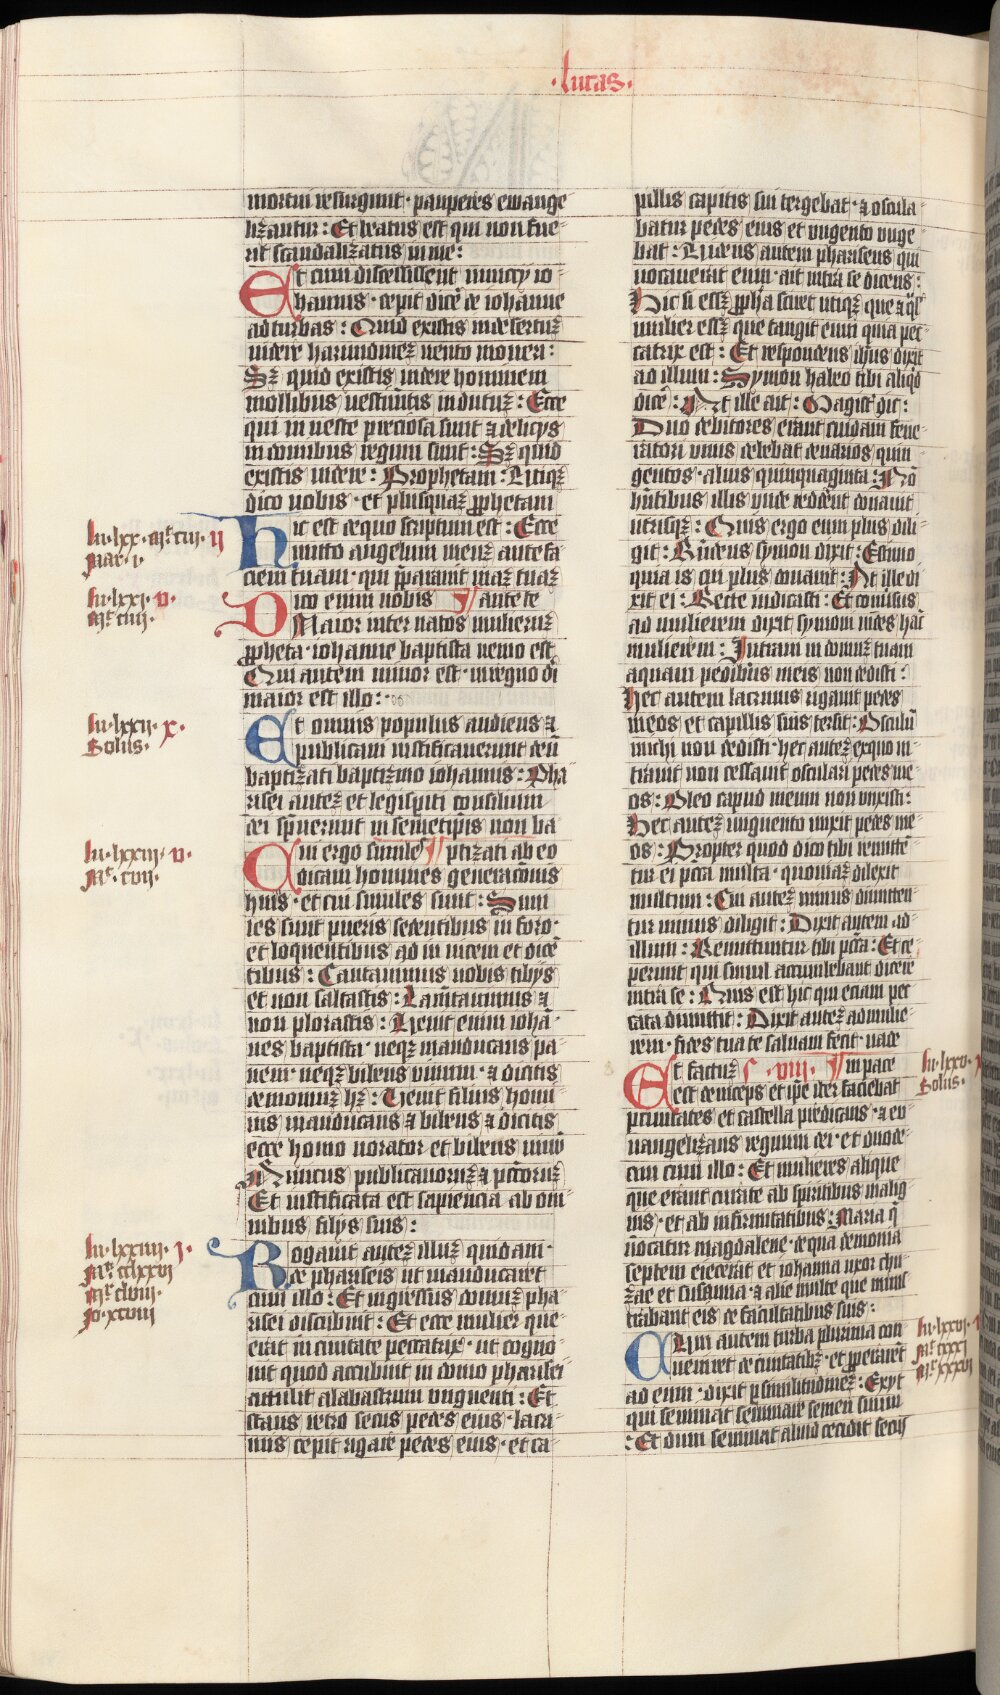 ·lucas·
mortui resurgunt · pauperes ewange
lizantur : Et beatus est qui non fue
rit scandalizatus in me :
Et cum discessissent nuncij io
hannis · cepit dicere de iohanne
ad turbas : Quid existis in desertuz
videre harundinez vento moveri :
Sz quid existis videre hominem
mollibus vestimentis indutuz : Ecce
qui in veste preciosa sunt et delicijs
in domibus regum sunt : Sz quid
existis videre : Prophetam : Utiqz
dico vobis · et plusquaz prophetam
lu · lxx · mt ciij · ij
mar · i ·
Hic est de quo scriptum est : Ecce
mitto angelum meuz ante fa
ciem tuam · qui preparavit viaz tuaz
lu · lxxi · v ·
mt ciiij ·
Dico enim vobis ¶ ante te
Maior inter natos mulieruz
propheta · iohanne baptista nemo est
Qui autem minor est · in regno di
maior est illo :
lu · lxxii · x ·
Solus ·
Et omnis populus audiens et
publicani iustificaverunt deum
baptizati baptizmo iohannis : Pha
risei autez et legisperiti consilium
dei spreverunt in semetipsis non ba
lu · lxxiii · v ·
mt · cvii ·
Cui ergo simile ¶ ptizati ab eo
dicam homines generacionis
huius · et cui similes sunt : Simi
les sunt pueris sedentibus in foro ·
et loquentibus ad in vicem et dicen
tibus : Cantavimus vobis tibijs
et non saltastis : Lamentavimus et
non plorastis : Venit enim iohan
nes baptista · neqz manducans pa
nem · neqz bibens vinum · et dicitis
demoniuz hz : Venit filius homi
nis manducans et bibens et dicitis
ecce homo vorator et bibens vinum
Amicus publicanoruz et peccatoruz
Et iustificata est sapiencia ab om
nibus filijs suis :
lu · lxxiiii · j ·
mt cclxxvi
mr clviii ·
jo · xcviii
Rogavit autez illuz quidam ·
de phariseis ut manducaret
cum illo : Et ingressus domuz pha
risei discubuit : Et ecce mulier que
erat in civitate peccatrix · ut cogno
vit quod accubuit in domo pharisei
attulit alabastrum ungenti : Et
stans retro secus pedes eius · lacri
mis cepit rigare pedes eius · et ca
pillis capitis sui tergebat · et oscula
batur pedes eius et vngento vnge
bat : Videns autem phariseus qui
vocaverat eum · ait intra se dicens :
Hic si essz propha sciret utiqz que et qlis
mulier essz que tangit eum quia pec
catrix est : Et respondens ihus dixit
ad illum : Symon habeo tibi aliqd
dice : At ille ait : Magister dic :
Duo debitores erant cuidam fene
ratori vnus debebat denarios quin
gentos · alius quinquaginta : Non
habentibus illis vnde redderent donavit
utrisqz : Quis ergo eum plus dili
git : Rndens symon dixit : Estimo
quia is cui plus donavit : At ille di
xit ei : Recte iudicasti : Et conversus
ad mulierem dixit symoni vides hanc
mulierem : Intravi in domuz tuam
aquam pedibus meis non dedisti :
Hec autem lacrimis rigavit pedes
meos et capillis suis tersit : Osculum
michi non dedisti · hec autez ex quo in
travit non cessavit osculari pedes me
os : Oleo capud meum non vnxisti :
Hec autez unguento unxit pedes me
os : Propter quod dico tibi remitten
tur ei pcta multa · quoniaz dilexit
multum : Cui autez minus dimitten
tur minus diligit : Dixit autem ad
illum : Remittuntur tibi pcta : Et ce
perunt qui simul accumbebant dicere
intra se : Quis est hic qui eciam pec
cata dimittit : Dixit autez ad mulie
rem · fides tua te salvam fecit · vade
lu · lxxv ·
Solus ·
Et factuz c · viii · ¶ in pace
est deinceps et ipse iter faciebat
p civitates et castella predicans · et eu
uangelizans regnum dei · et duode
cim cum illo : Et mulieres alique
que erant curate ab spiritibus malig
nis · et ab infirmitatibus : Maria q
vocatur magdalene · de qua demonia
septem eiecerat et iohanna uxor chu
zae et susanna · et alie multe que minis
trabant eis de facultatibus suis :
lu · lxxvi ·
mt cxxxi
mr xxxvi
Cum autem turba plurima con
veniret de civitatibz · et properarent
ad eum · dixit p similitudinez : Exijt
qui seminat seminare semen suum
: Et dum seminat aliud cecidit secus